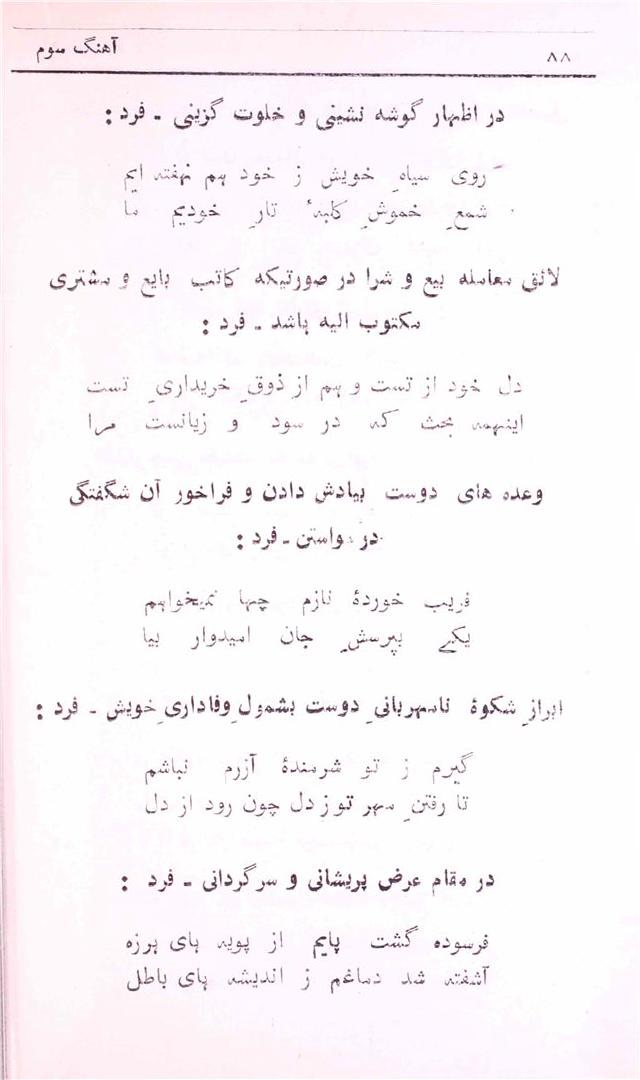 ۸۸ آهنگ سوم
در اظهار گوشه نشینی و خلوت گزینی ـ فرد :
روی سیاهِ خویش ز خود هم نهفته ایم
شمعِ خموشِ کلبۂ تارِ خودیم ما
لائق معامله بیع و شرا در صورتیکه کاتب بایع و مشتری
مکتوب الیه باشد ـ فرد :
دل خود از تست و هم از ذوقِ خریداریِ تست
اینهمه بحث که در سود و زیانست مرا
وعده های دوست بیادش دادن و فراخور آن شگفتگی
در خواستن ـ فرد :
فریب خوردۂ نازم چها نمیخواهم
یکے بپرسشِ جان امیدوار بیا
ابرازِ شکوۂ نامهربانیِ دوست بشمولِ وفاداریِ خویش ـ فرد :
گیرم ز تو شرمندۂ آزرم نباشم
تا رفتنِ مهر تو ز دل چون رود از دل
در مقام عرض پریشانی و سرگردانی ـ فرد :
فرسوده گشت پایم از پویه ہای ہرزہ
آشفته شد دماغم ز اندیشه ہای باطل